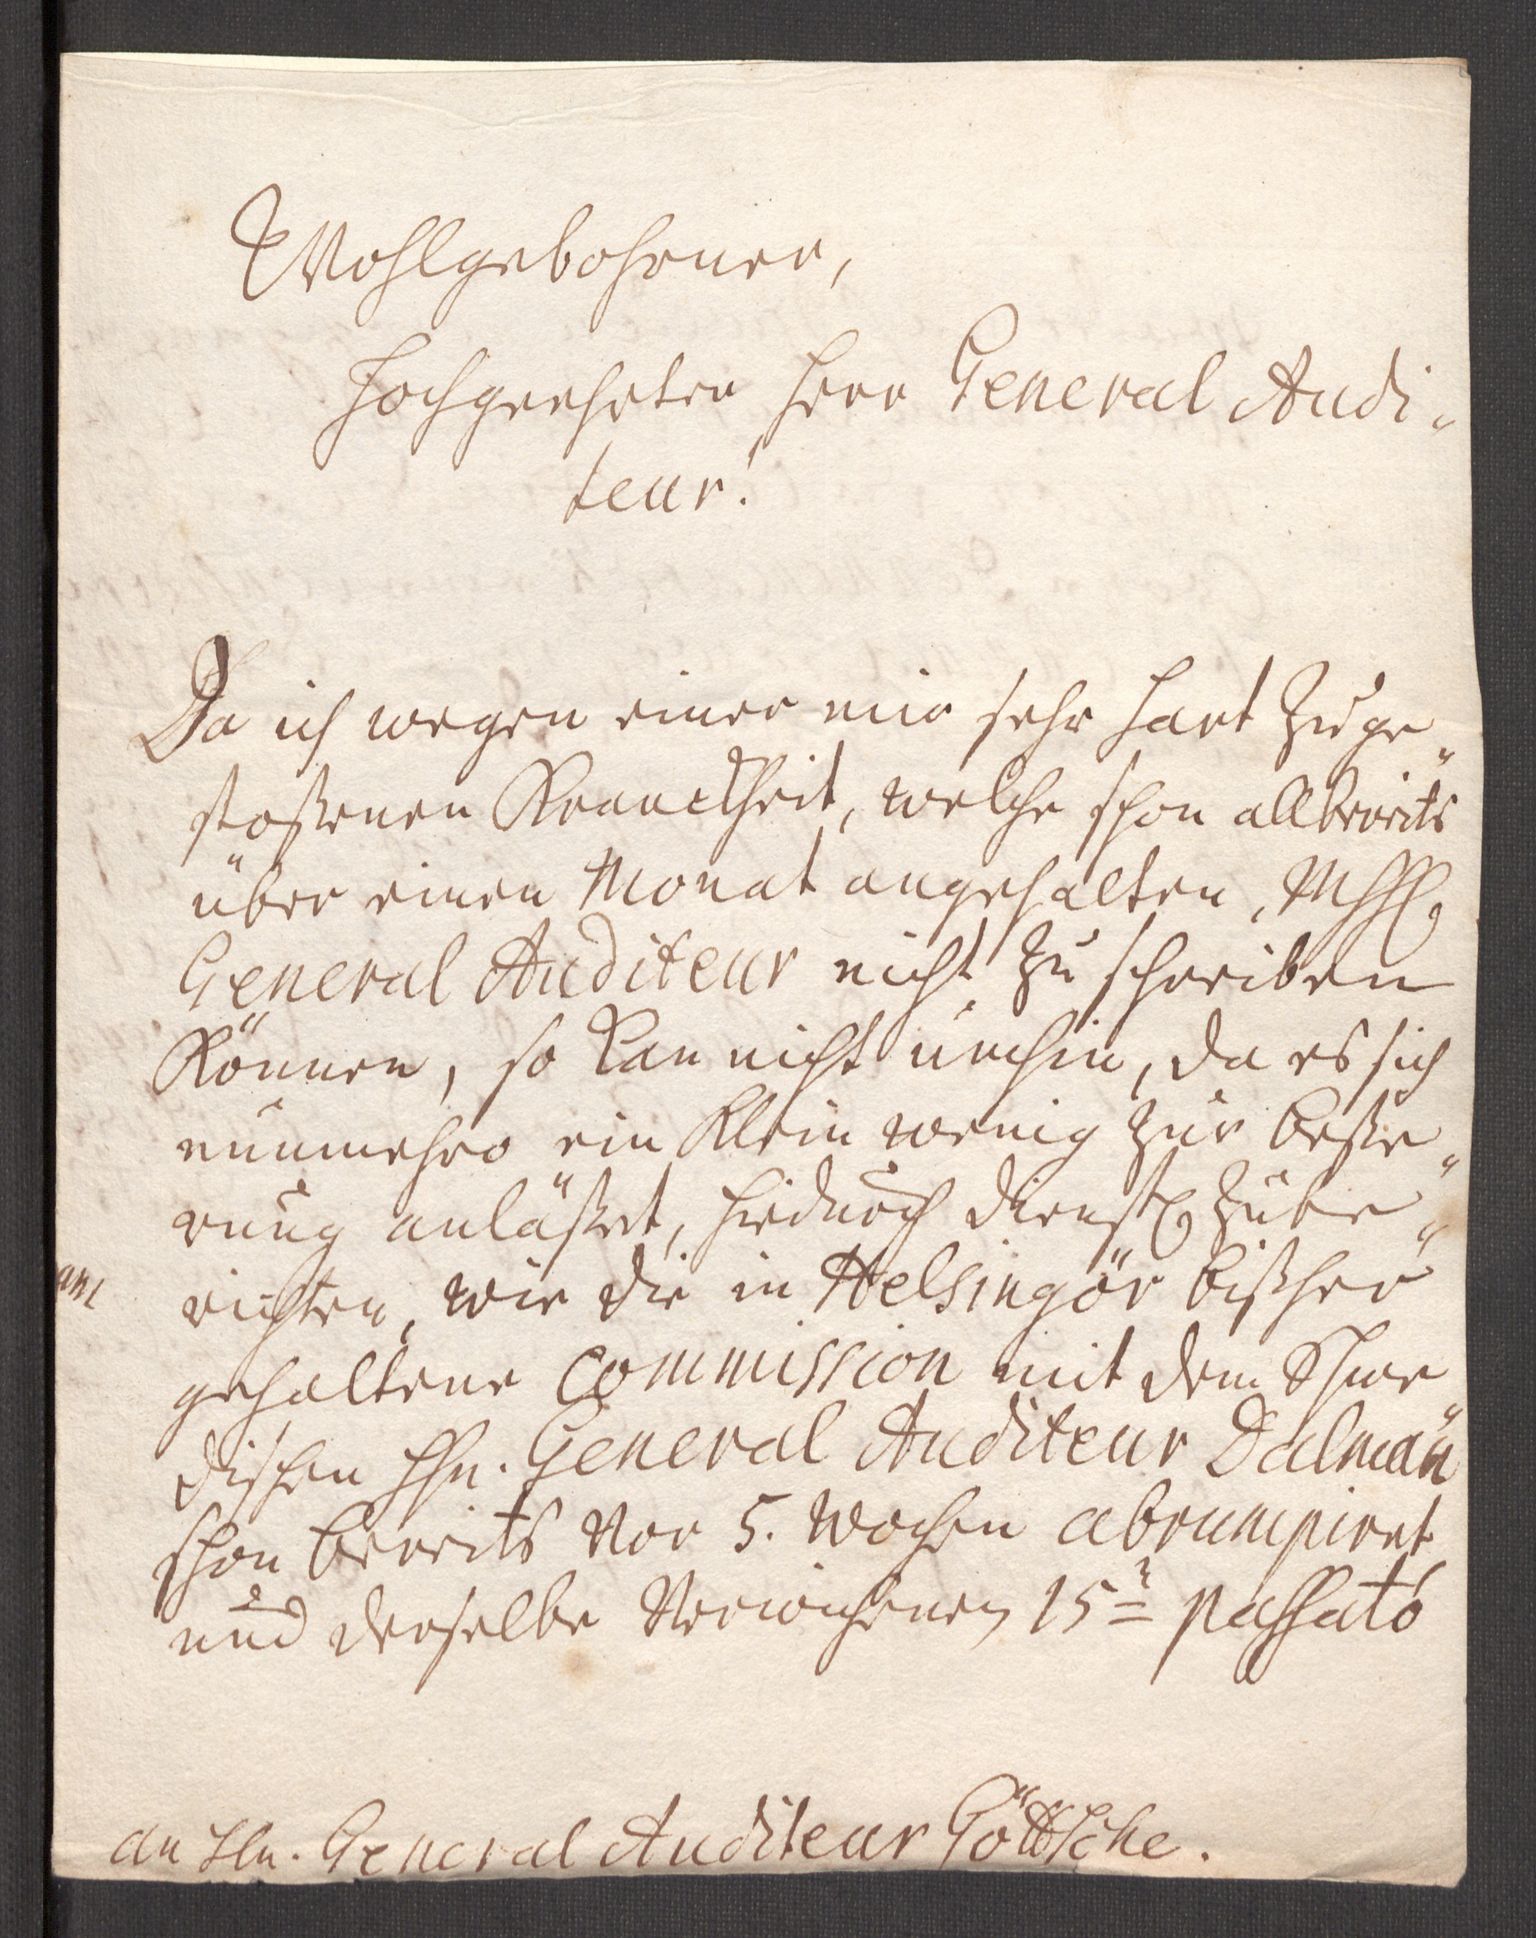 Wohlgebohrner,
Hochgeehrter Herr General Audi-
teur!
Da ich wegen einer mir sehr hart zuge-
stoßenen Kranckheit, welche schon allbereits
über einen Monat angehalten,
General Auditeur nicht zu schreiben
können, so kan nicht umhin, da es sich
nunmehro ein klein wenig zur beße-
rung anläßet, hiedurch dienstl. zu be-
richten, wie die in Helsingör bißher
gehaltene Commission mit dem Schwe-
dischen Hn. General Auditeur Dalman
schon bereits vor 5. Wochen abrumpiret,
und derselbe verwichenen 15n passato
an Hn. General Auditeur Göttsche.